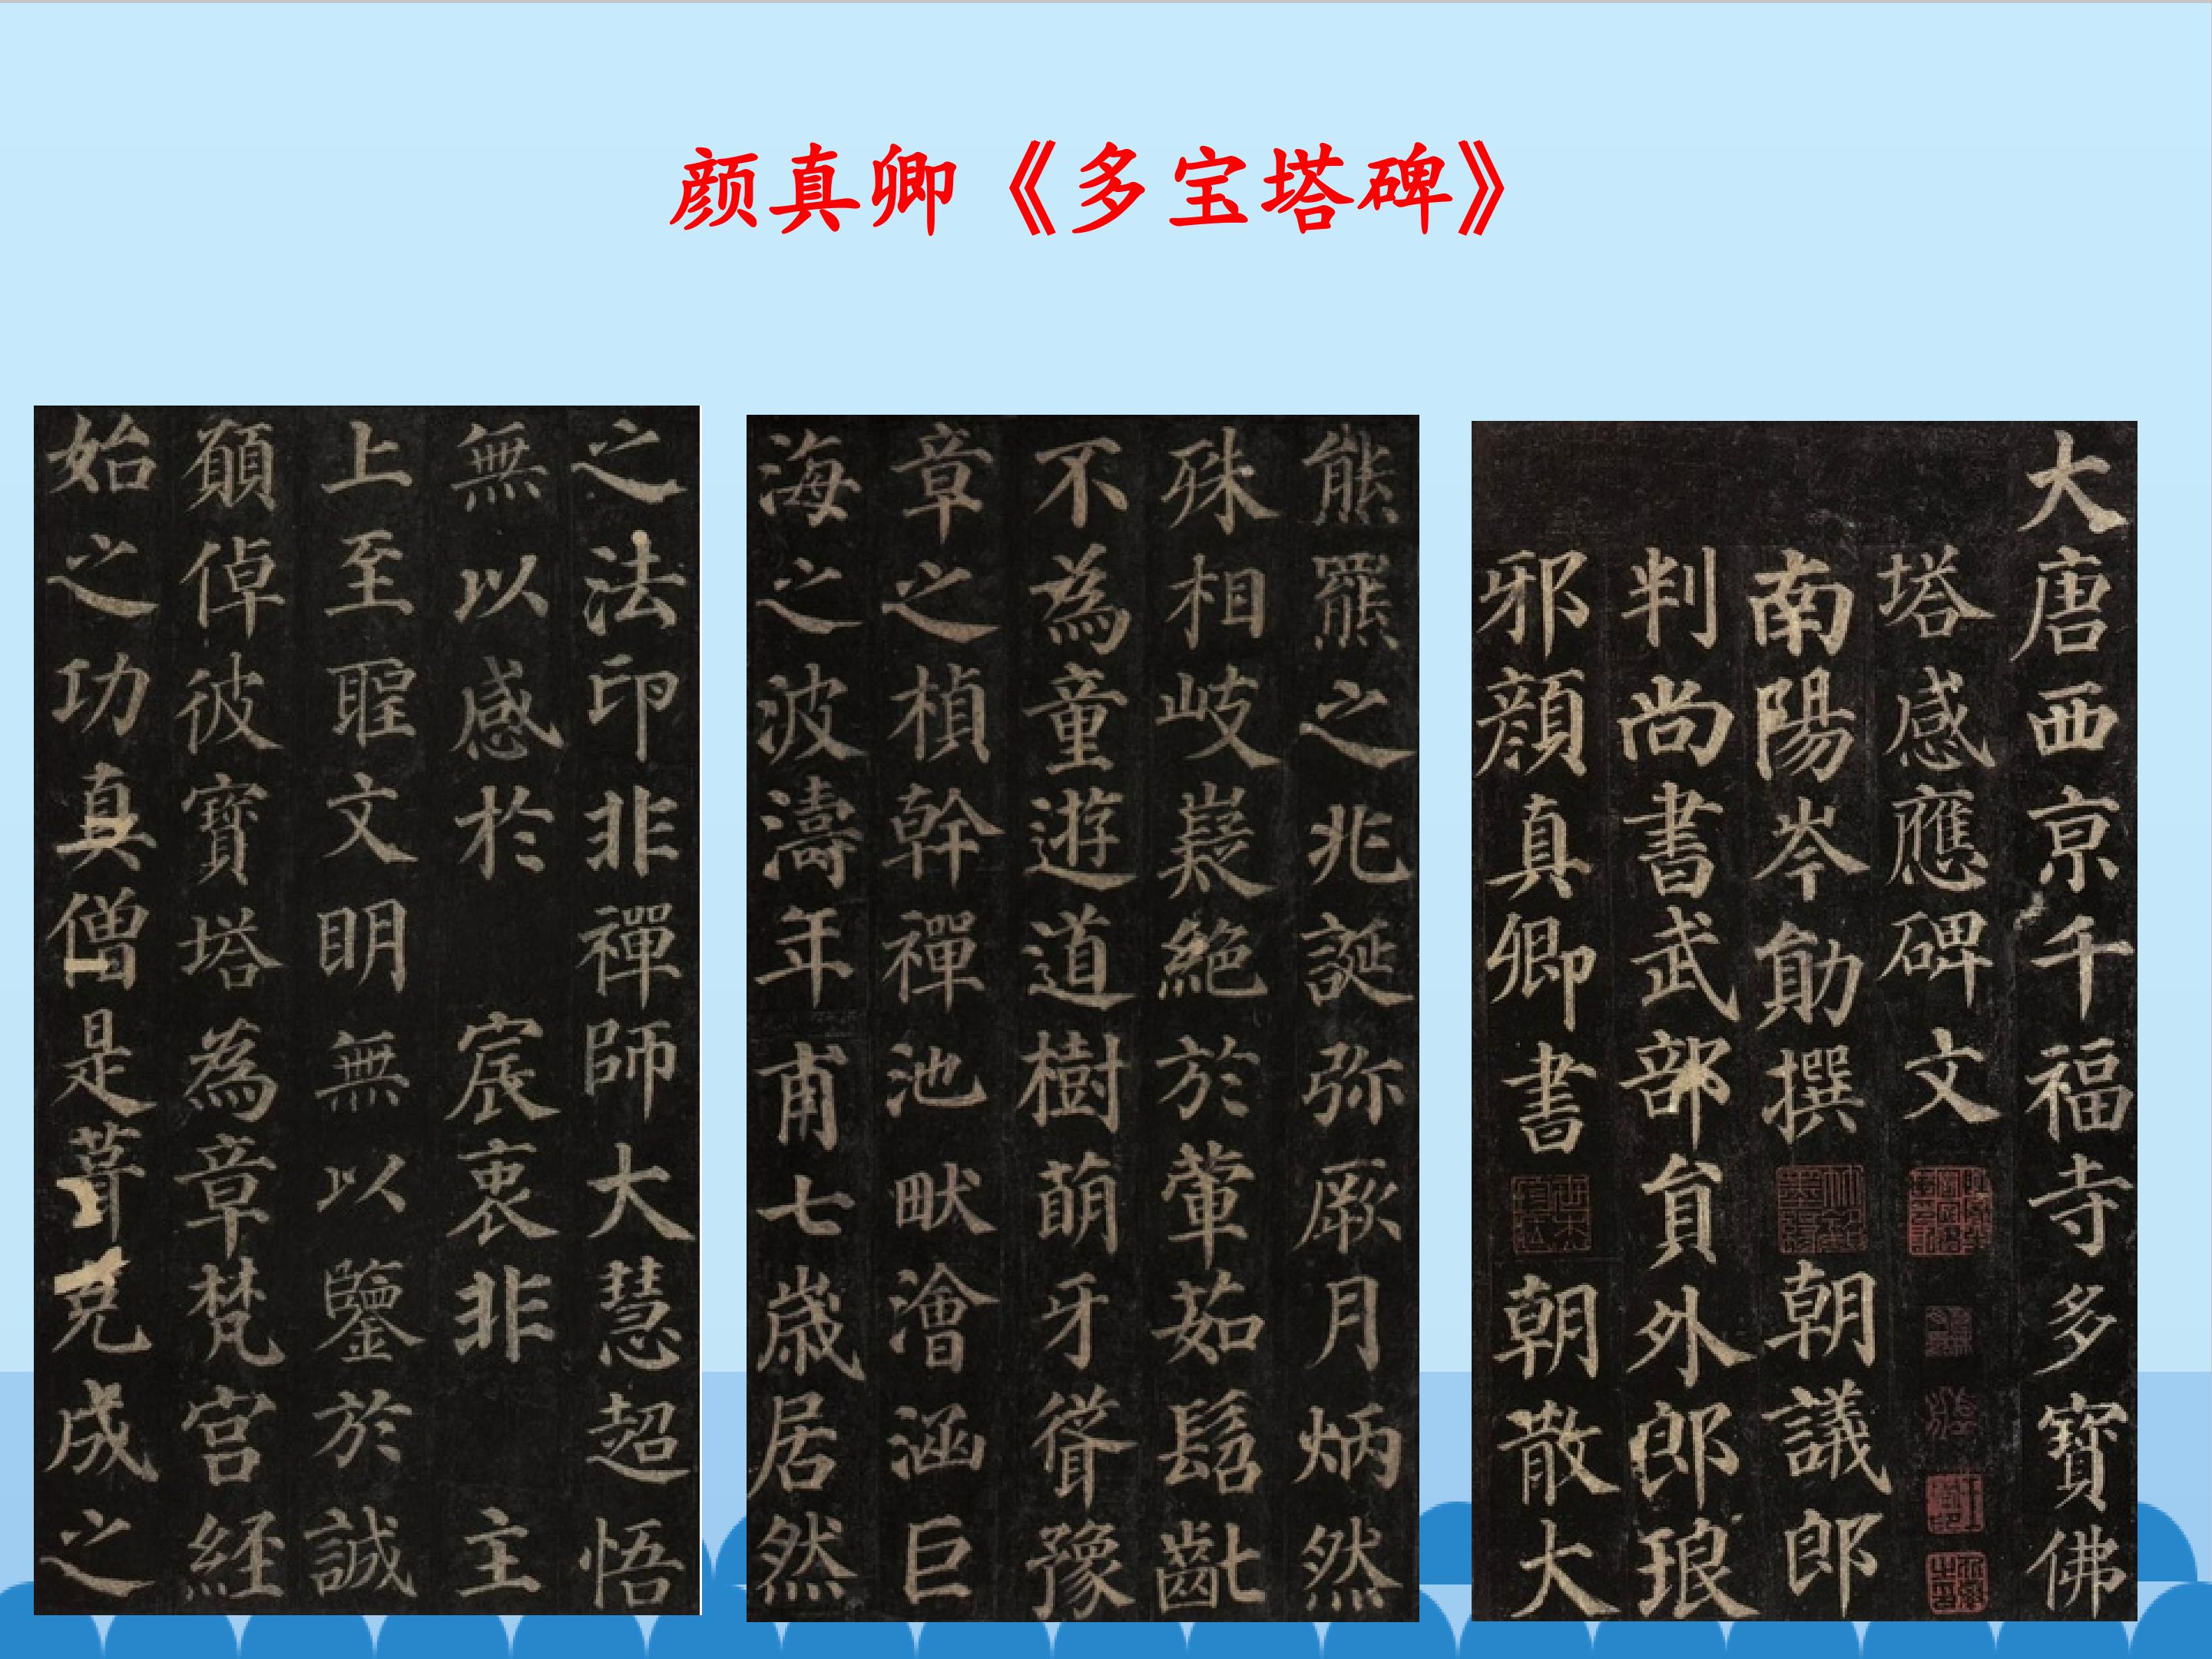 颜真卿《多宝塔碑》
大唐西京千福寺多寶佛
塔感應碑文
南陽岑勛撰朝議郎
判尚書武部貟外郎琅
邪顔真卿書朝散大
熊羆之兆誕弥厥月炳然
殊相岐嶷絶於葷茹髫齓
不為童遊道樹萌牙聳豫
章之楨幹禪池畎澮涵巨
海之波濤年甫七歲居然
之法印非禪師大慧超悟
無以感於宸衷非主
上至聖文明無以鑒於誠
願倬彼寶塔為章梵宫経
始之功真僧是葺克成之